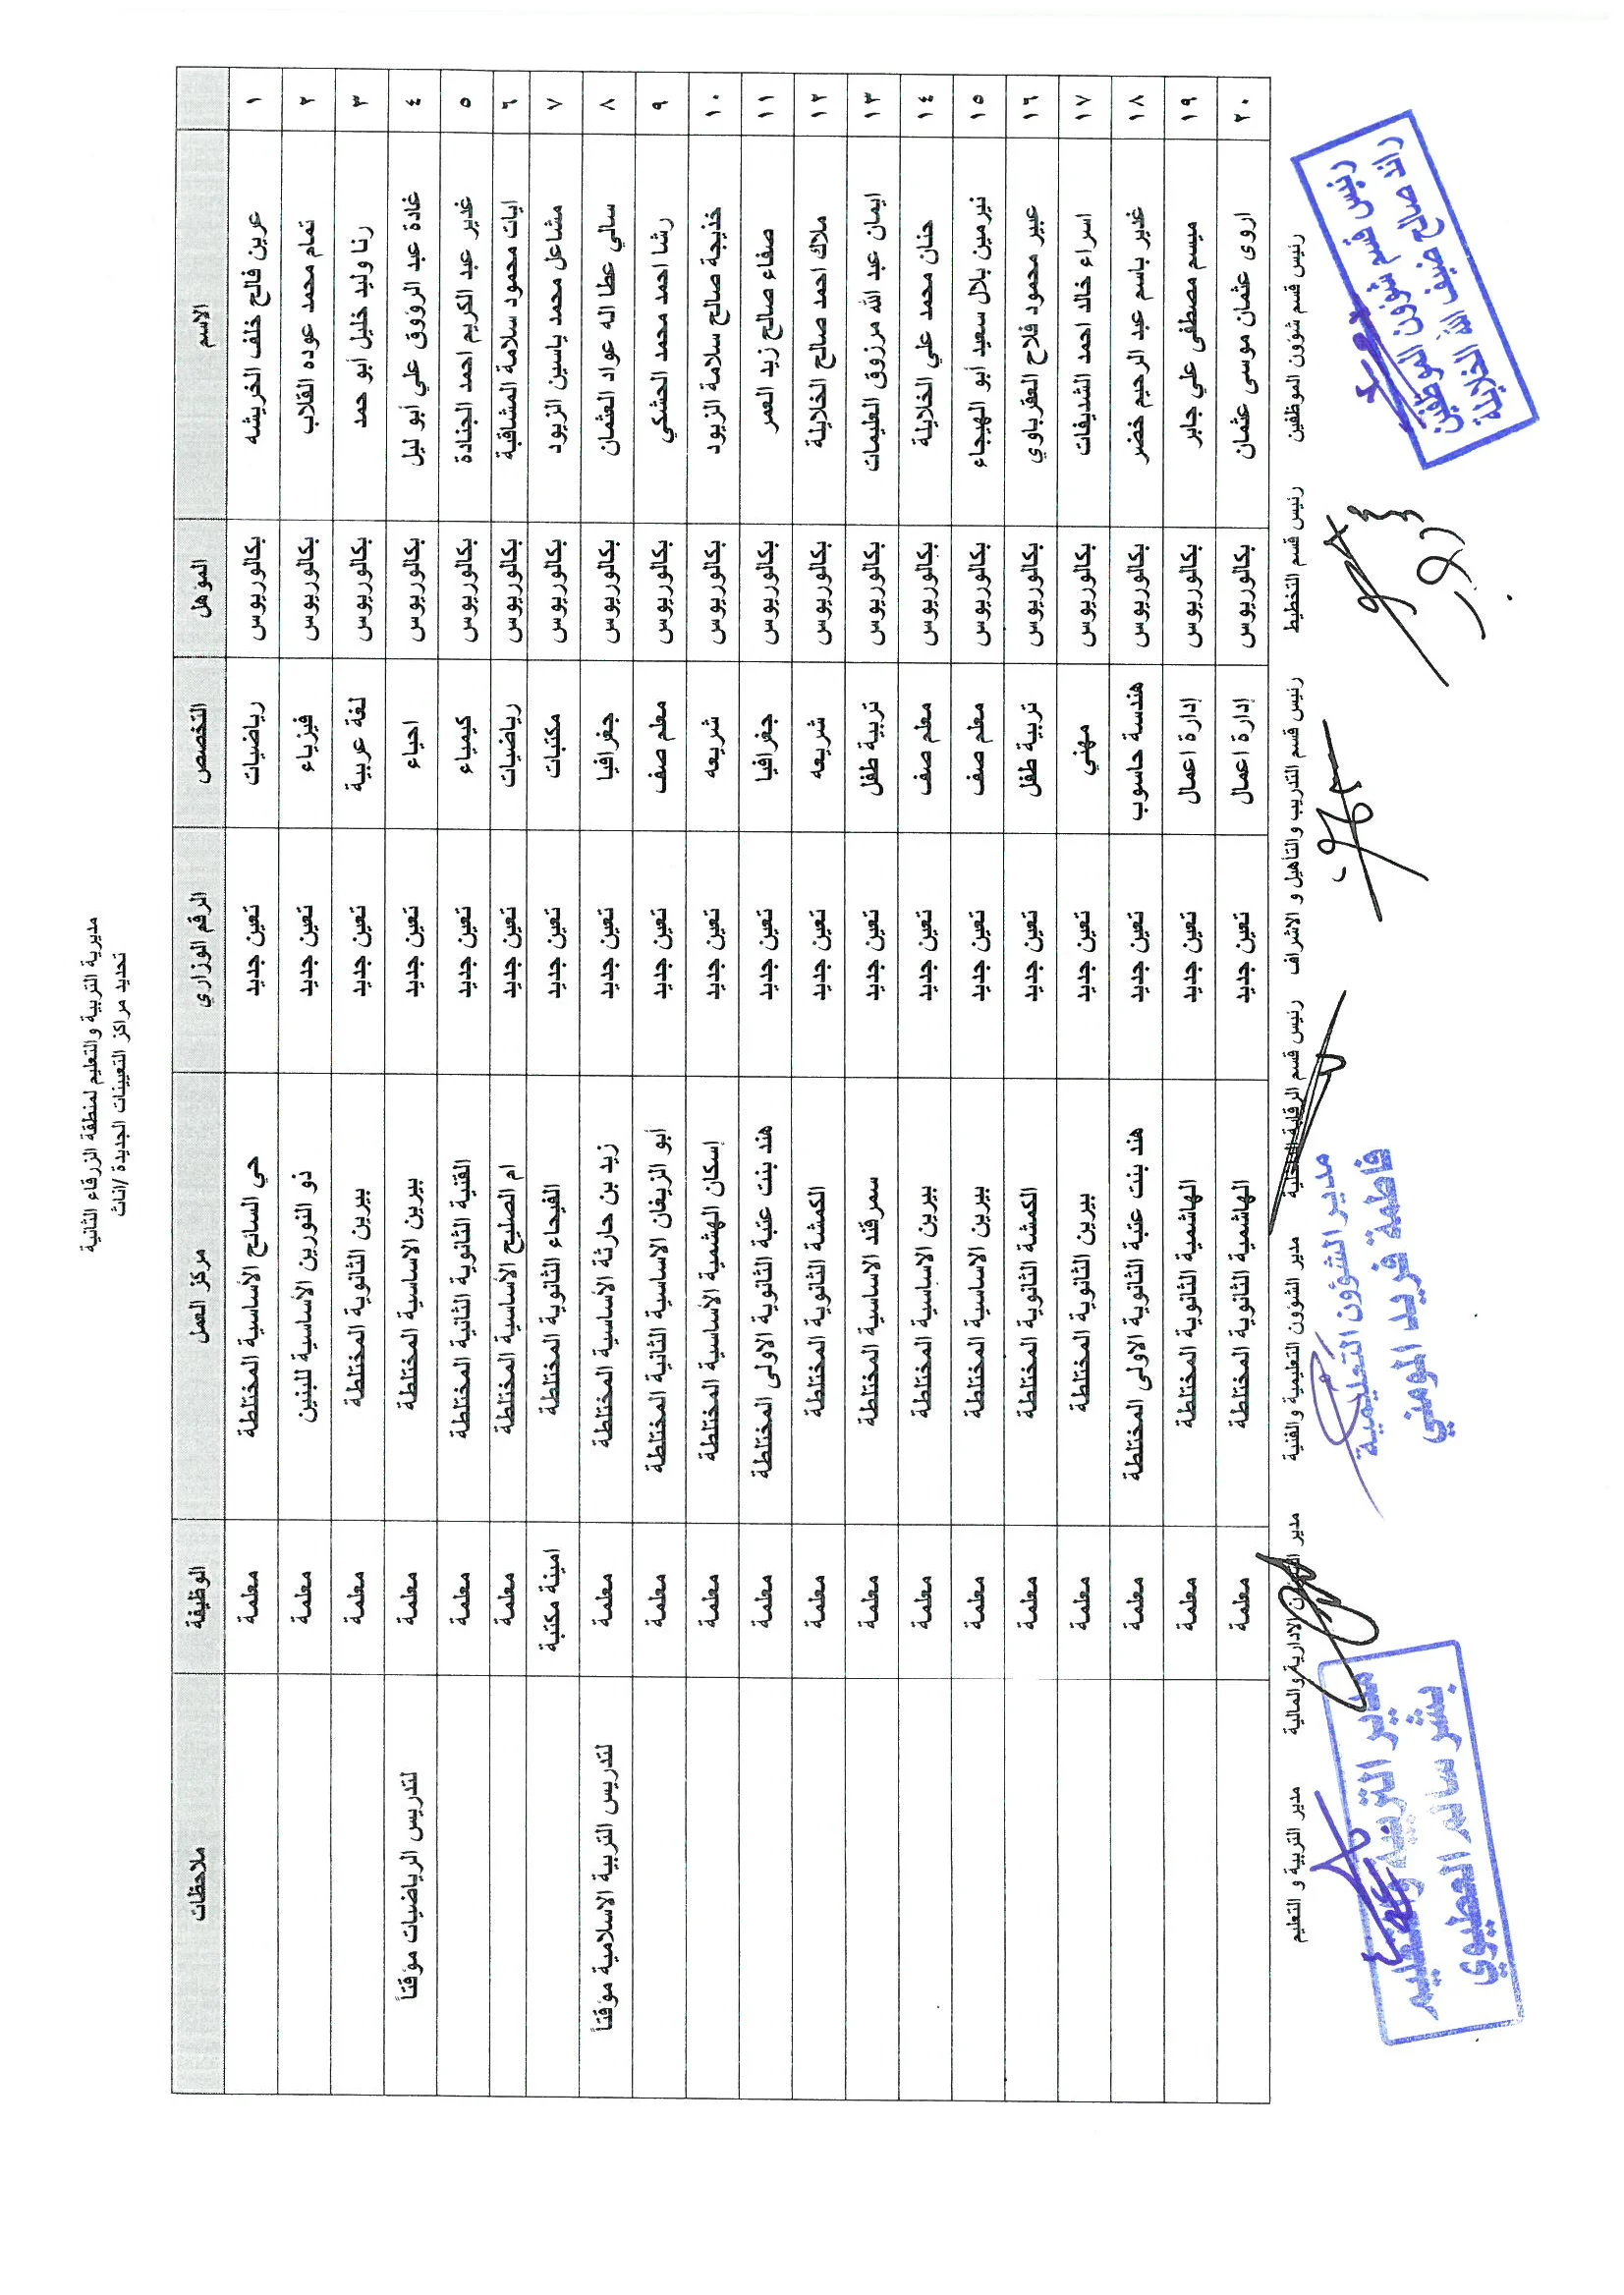 مديرية التربية والتعليم لمنطقة الزرقاء الثانية
تحديد مراكز التعيينات الجديدة /اناث
الاسم المؤهل التخصص الرقم الوزاري مركز العمل الوظيفة ملاحظات
١ عرين فالح خلف الخريشه بكالوريوس رياضيات تعين جديد حي السائح الأساسية المختلطة معلمة
٢ تمام محمد عوده القلاب بكالوريوس فيزياء تعين جديد ذو النورين الأساسية للبنين معلمة
٣ رنا وليد خليل أبو حمد بكالوريوس لغة عربية تعين جديد بيرين الثانوية المختلطة معلمة
٤ غادة عبد الرؤوق علي أبو ليل بكالوريوس احياء تعين جديد بيرين الاساسية المختلطة معلمة لتدريس الرياضيات مؤقتاً
٥ غدير عبد الكريم احمد الجنادة بكالوريوس كيمياء تعين جديد القنية الثانوية الثانية المختلطة معلمة
٦ ايات محمود سلامة المشاقبة بكالوريوس رياضيات تعين جديد ام الصليح الأساسية المختلطة معلمة
٧ مشاعل محمد ياسين الزيود بكالوريوس مكتبات تعين جديد الفيحاء الثانوية المختلطة امينة مكتبة
٨ سالي عطا اله عواد العثمان بكالوريوس جغرافيا تعين جديد زيد بن حارثة الأساسية المختلطة معلمة لتدريس التربية الاسلامية مؤقتاً
٩ رشا احمد محمد الحشكي بكالوريوس معلم صف تعين جديد أبو الزيغان الاساسية الثانية المختلطة معلمة
١٠ خديجة صالح سلامة الزيود بكالوريوس شريعه تعين جديد إسكان الهشمية الأساسية المختلطة معلمة
١١ صفاء صالح زيد العمر بكالوريوس جغرافيا تعين جديد هند بنت عتبة الثانوية الاولى المختلطة معلمة
١٢ ملاك احمد صالح الخلايلة بكالوريوس شريعه تعين جديد الكمشة الثانوية المختلطة معلمة
١٣ ايمان عبد الله مرزوق العليمات بكالوريوس تربية طفل تعين جديد سمرقند الاساسية المختلطة معلمة
١٤ حنان محمد علي الخلايلة بكالوريوس معلم صف تعين جديد بيرين الاساسية المختلطة معلمة
١٥ نيرمين بلال سعيد أبو الهيجاء بكالوريوس معلم صف تعين جديد بيرين الاساسية المختلطة معلمة
١٦ عبير محمود فلاح العقرباوي بكالوريوس تربية طفل تعين جديد الكمشة الثانوية المختلطة معلمة
١٧ اسراء خالد احمد الشديفات بكالوريوس مهني تعين جديد بيرين الثانوية المختلطة معلمة
١٨ غدير باسم عبد الرحيم خضر بكالوريوس هندسة حاسوب تعين جديد هند بنت عتبة الثانوية الاولى المختلطة معلمة
١٩ ميسم مصطفى علي جابر بكالوريوس إدارة اعمال تعين جديد الهاشمية الثانوية المختلطة معلمة
٢٠ اروى عثمان موسى عثمان بكالوريوس إدارة اعمال تعين جديد الهاشمية الثانوية المختلطة معلمة
رئيس قسم شؤون الموظفين رئيس قسم التخطيط رئيس قسم التدريب والتأهيل و الاشراف رئيس قسم الرقابة الداخلية مدير الشؤون التعليمية والفنية مدير الشؤون الادارية والمالية مدير التربية و التعليم
رئيس قسم شؤون الموظفين
رائد صالح ضيف الله الخلايلة
مدير الشؤون التعليمية
فاطمة فريد المومني
مدير التربية والتعليم
بشر سالم العطيوي